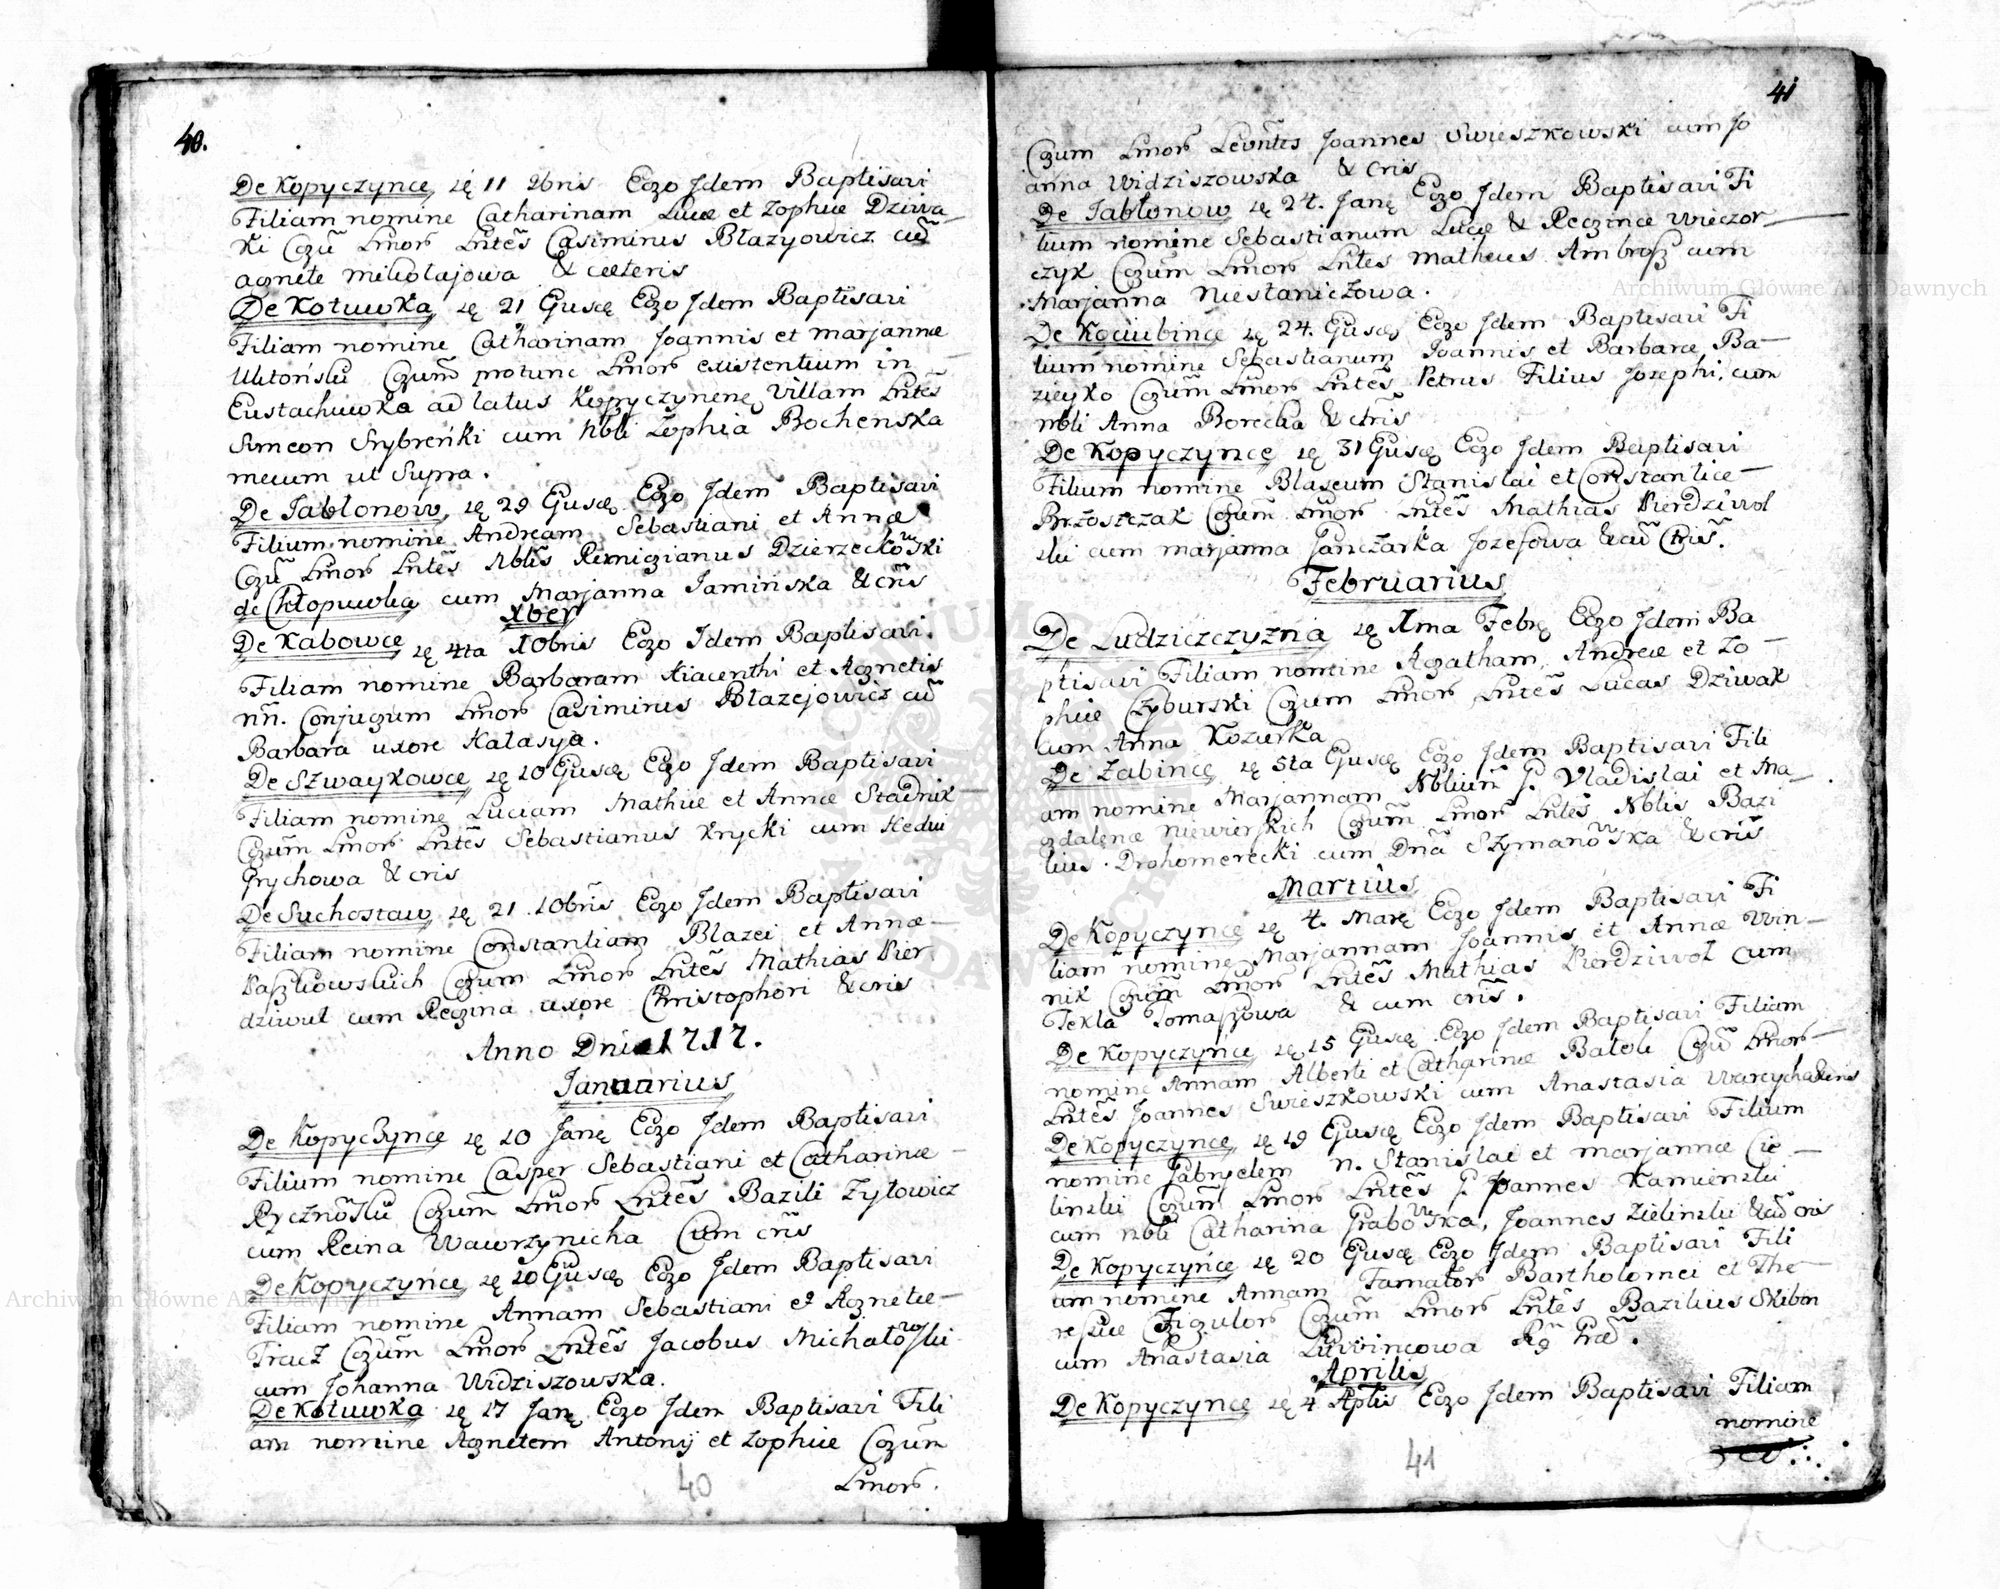 40.
De Kopyczyńce, ię 11 9bris Ego Idem Baptisavi
Filiam nomine Catharinam Lucæ et Zophiæ Dziwa
ki Cgũ Lmor Lntẽs Casimirus Błazyowicz cũ
agnete mikołajowa & cæteris
De Kotuwka, ię 21 Eiusdę Ego Idem Baptisavi
Filiam nomine Catharinam Joannis et marjannæ
Cgum protunc Lmor existentium in
Eustachuwka ad latus Kopyczynenę Villam Lntẽs
Simeon Srybreńki cum Nbli Zophia Bochenska
mecum ut Supra.
De Jabłonow, ię 29 Eiusdę Ego Idem Baptisavi
Filium nomine Andream Sebastiani et Annæ
Cgũ Lmor Lntẽs Nblis Remigianus Dzierzeckowski
de Chłopuwka cum Marjanna Jaminska & cris
Xber
De Kabowce ię 4ta X0bris Ego Idem Baptisavi.
Filiam nomine Barbaram Hiacenthi et Agnetis
nñ. Conjugum Lmor Casimirus Błazejowicz cũ
Barbara uxore Hałasya.
De Szwaykowce ię 10 Eiusdę Ego Idem Baptisavi
Filiam nomine Luciam Mathiæ et Annæ Stadnik
Cgum Lmor Lntẽs Sebastianus Krycki cum Hedwi
Grychowa & cris
De Suchostaw ię 21 10bris Ego Idem Baptisavi
Filiam nomine Constantiam Blazei et Annæ
Paszkowskich Cgum Lmor Lntẽs Mathias Pier
dziwul cum Regina uxore Christophori & cris
Anno Dni 1717.
Januarius
De Kopyczyńce ię 10 Janę Ego Idem Baptisavi
Filium nomine Casper Sebastiani et Catharinæ
Cgum Lmor Lntẽs Bazili Zyłowicz
cum Reina Wawrzynicha Cum cris
De Kopyczyńce, ię 10 Eiusdę Ego Idem Baptisavi
Filiam nomine Annam Sebastiani et Agnetæ
Tracz Cgum Lmor Lntẽs Jacobus Michałowski
cum Johanna Widziszowska.
De Kotuwka ię 17 Janę Ego Idem Baptisavi Fili
am nomine Agnetem Antonij et Zophiæ Cgum
Lmor.
40
41
Cgum Lmor Levntes Joannes Swieszkowski cum Jo
anna Widziszowska & cris
De Jabłonow ię 24. Janę Ego Idem Baptisavi Fi
lium nomine Sebastianum Lucæ & Reginæ Wieczor
czyk Cgum Lmor Lntes Matheus Ambroß cum
Marjanna Niestaniczowa.
De Kociubince ię 24. Eiusdę Ego Idem Baptisavi Fi
lium nomine Sebastianum Joannis et Barbaræ Ba
zieyko Cgum Lmor Lntẽs Petrus Filius Josephi, cum
nbli Anna Borecka & cris
De Kopyczyńce ię 31 Eiusdę Ego Idem Baptisavi
Filium nomine Blaseum Stanislai et Constantiæ
Brzoszczak Cgum Lmor Lntẽs Mathias Pierdziwol
ski cum marjanna Janczarka Jozefowa & cũ Cris.
Februarius
De Ludziczczyzna ię Xma Febrę Ego Idem Ba
ptisavi Filiam nomine Agatham, Andreæ et Zo
phiæ Czyburski Cgum Lmor Lntẽs Lucas Dziwak
cum Anna Kozierka
De Zabince ię 5ta Eiusdę Ego Idem Baptisavi Fili
am nomine Marjannam Nblium G. Vladislai et Ma
gdalenæ Niewierskich Cgum Lmor Lntẽs Nblis Bazi
lius Drohomerecki cum Dnã Szymanowska & cris
Martius
De Kopyczyńce ię 4. Marę Ego Idem Baptisavi Fi
liam nomine Marjannam Joannis et Annæ Win
nik Cgum Lmor Lntẽs Mathias Pierdziwoł cum
Tekla Tomaszowa & cum cris.
De Kopyczyńce ię 15 Eiusdę Ego Idem Baptisavi Filiam
nomine Annam Alberti et Catharinæ Cgũ Lmor
Lntẽs Joannes Swieszkowski cum Anastasia
De Kopyczyńce, ię 19 Eiusdę Ego Idem Baptisavi Filium
nomine Gabryelem n. Stanislai et marjannæ Cie
linski Cgum Lmor Lntẽs G. Joannes Kamienski
cum Nbli Catharina Grabowska, Joannes Zielinski & cũ cris
De Kopyczyńce ię 20 Eiusdę Ego Idem Baptisavi Fili
am nomine Annam Famator Bartholomei et The
resiæ Figulor Cgum Lmor Lntẽs Bazilius Skibin
cum Anastasia Litwincowa
Aprilis
De Kopyczyńce ię 4 Aplis Ego Idem Baptisavi Filiam
nomine
41
Archiwum Główne Akt Dawnych
Archiwum Główne Akt Dawnych